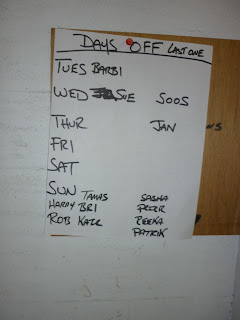 DAYS OFF LAST ONE
TUES BARBI
WED SUE SOOS
THUR JAN
FRI
SAT
SUN TAMAS SABHA
HARRY BRI PETER
ROB KATE REEKA
PATRIK